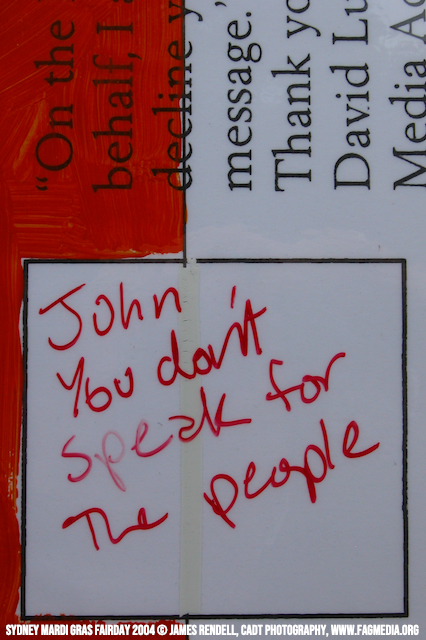 “On the
behalf, I a
decline y
message.”
Thank yo
David Lu
Media Ad
John
You don't
speak for
The people
SYDNEY MARDI GRAS FAIRDAY 2004 © JAMES RENDELL, CADT PHOTOGRAPHY, WWW.FAGMEDIA.ORG